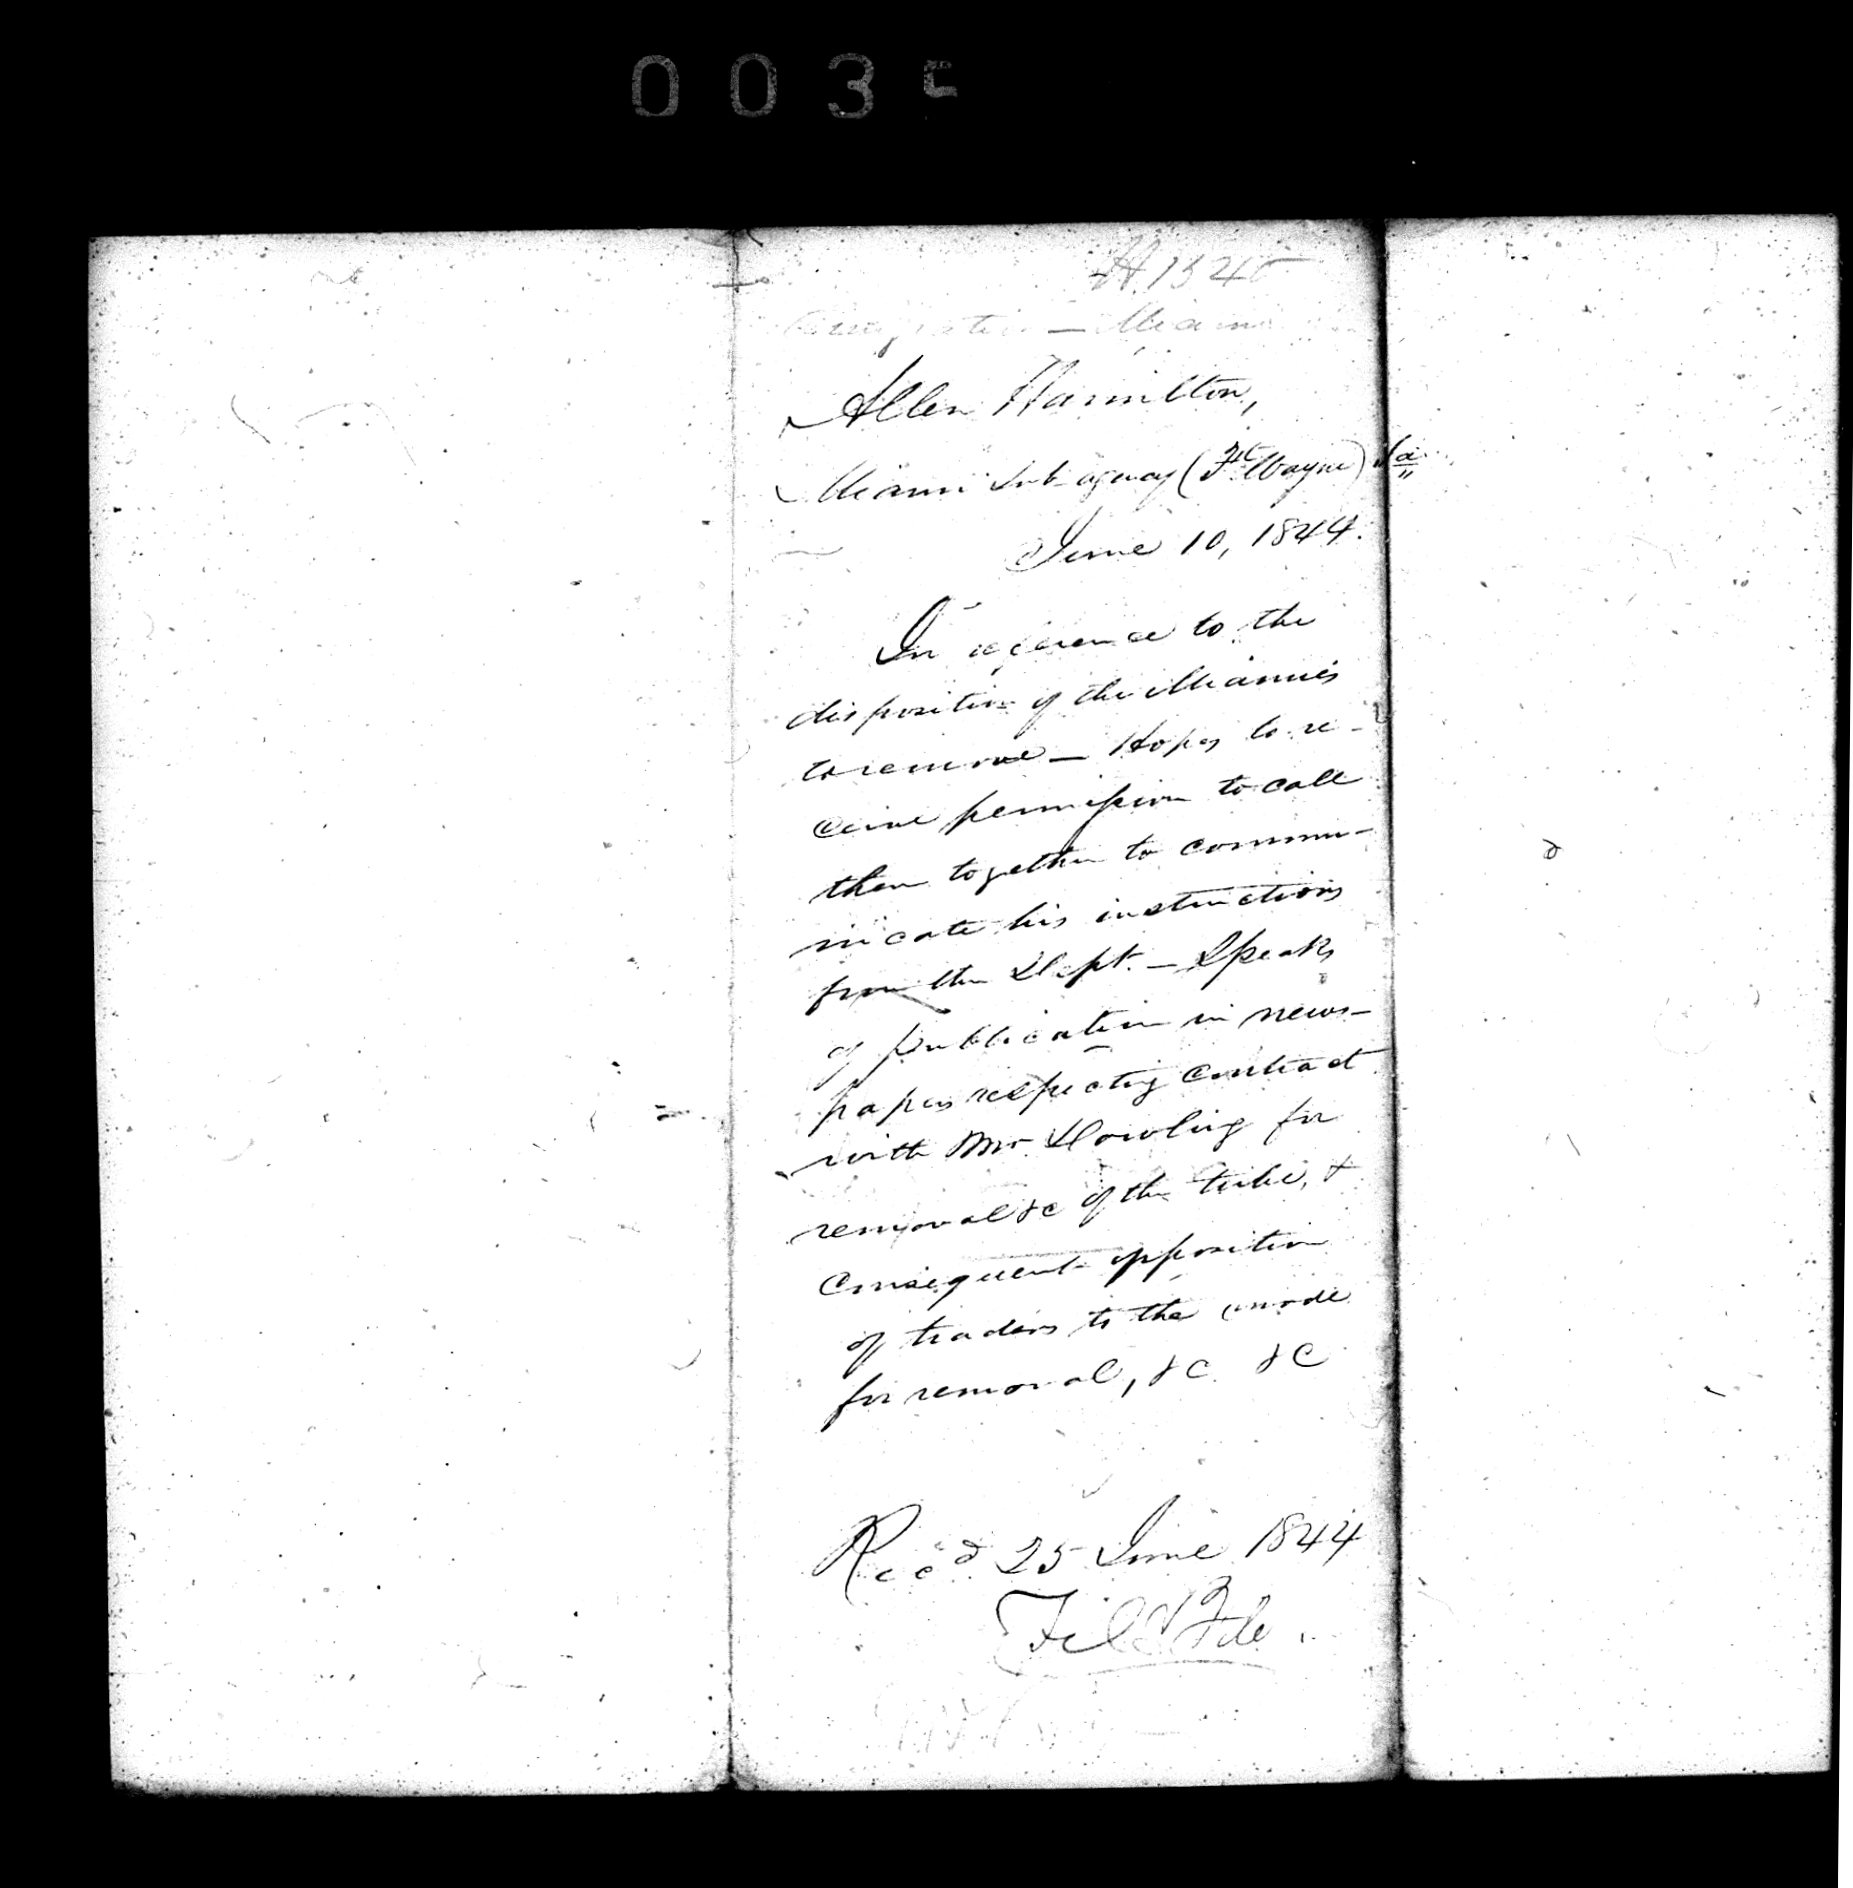 0035
Allen Hamilton,
Miami Sub-agency (Ft. Wayne) Ia
June 10, 1844.
In reference to the
disposition of the Miamies
to remove — Hopes to re-
ceive permission to call
them together to commu-
nicate his instructions
from the Dept. — Speaks
of publication in news-
papers respecting contract
with Mr. Dowling for
removal &c of the tribe, &
consequent opposition
of traders to the mode
for removal, &c. &c
Recd 25 June 1844
File